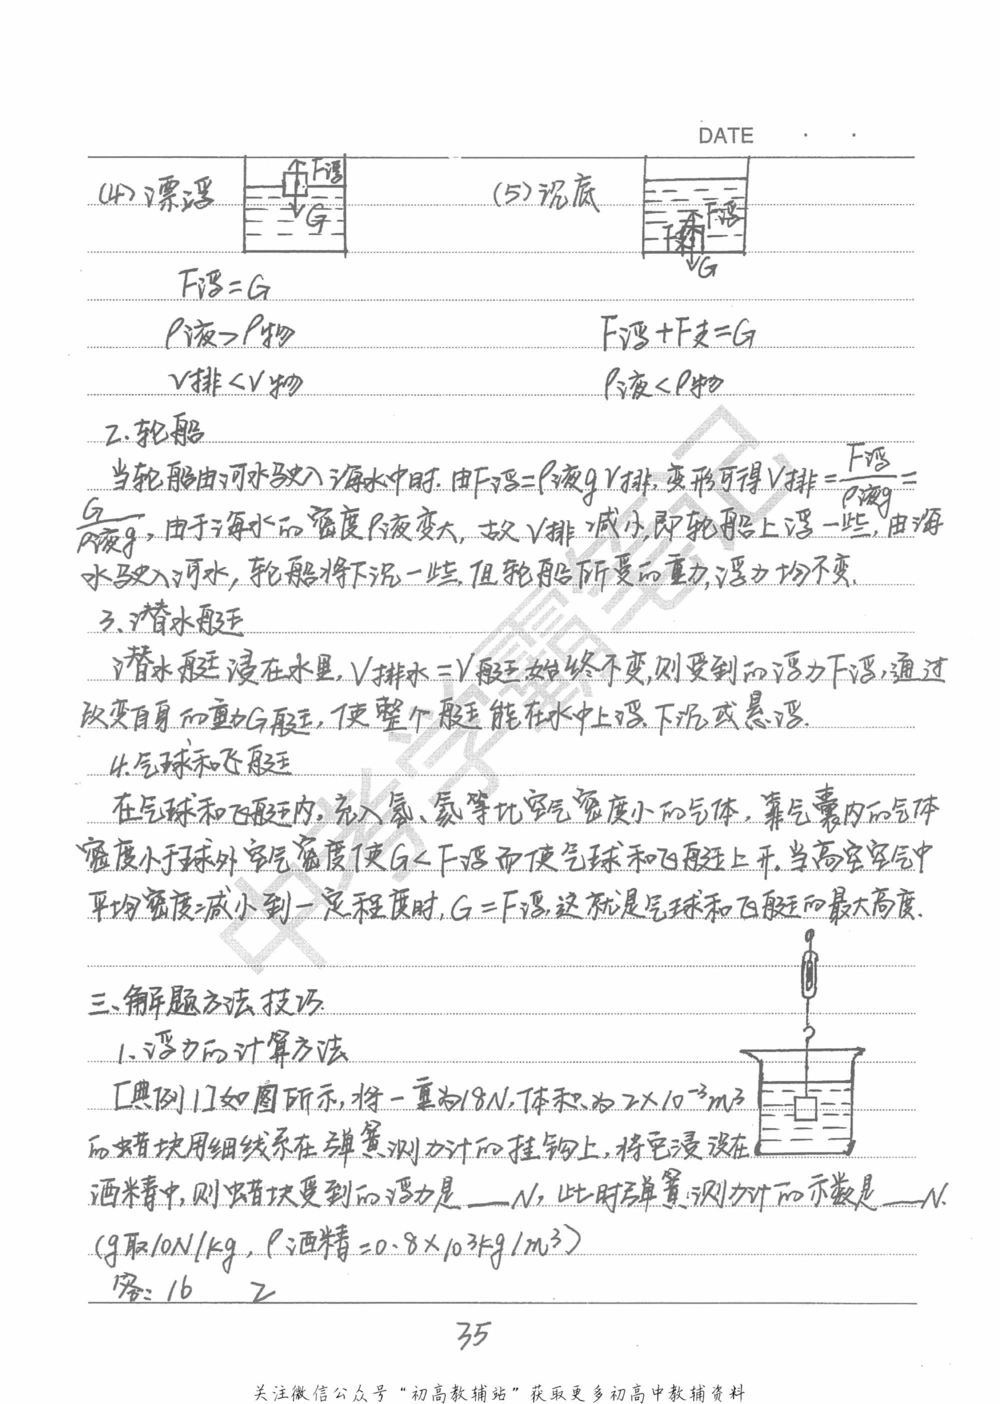 DATE · ·
(4)漂浮 F浮 G (5)沉底 F浮 F支 G
F浮=G
ρ液>ρ物 F浮+F支=G
V排<V物 ρ液<ρ物
2.轮船
当轮船由河水驶入海水中时.由F浮=ρ液gV排,变形可得V排=F浮/ρ液g=
G/ρ液g,由于海水的密度ρ液变大,故V排减小,即轮船上浮一些,由海
水驶入河水,轮船将下沉一些.但轮船所受的重力,浮力均不变.
3.潜水艇
潜水艇浸在水里,V排水=V艇始终不变,则受到的浮力F浮,通过
改变自身的重力G艇,使整个艇能在水中上浮、下沉或悬浮.
4.气球和飞艇
在气球和飞艇内,充入氢、氦等比空气密度小的气体,靠气囊内的气体
密度小于球外空气密度使G<F浮而使气球和飞艇上升.当高空空气中
平均密度减小到一定程度时,G=F浮,这就是气球和飞艇的最大高度.
三、解题方法技巧.
1、浮力的计算方法
[典例1]如图所示,将一重为18N,体积为2×10⁻³m³
的蜡块用细线系在弹簧测力计的挂钩上,将它浸没在
酒精中,则蜡块受到的浮力是__N,此时弹簧测力计的示数是__N.
(g取10N/kg,ρ酒精=0.8×10³kg/m³)
答:16 2
35
关注微信公众号“初高教辅站”获取更多初高中教辅资料
中考学霸笔记